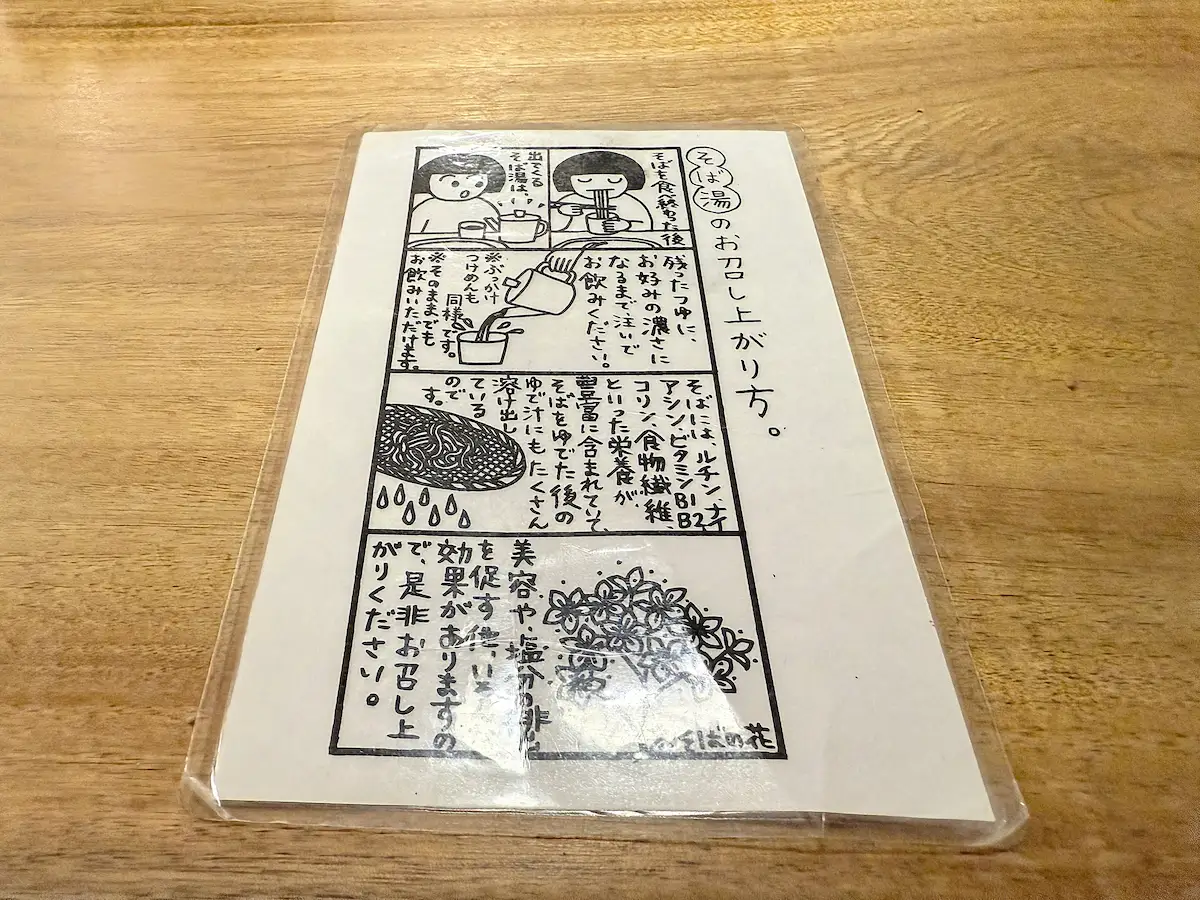 そば湯のお召し上がり方。
そばを食べ終わった後
出てくる
そば湯は、
残ったつゆに、
お好みの濃さに
なるまで、注いで
お飲みください。
※ぶっかけ
つけめんも
同様です。
※そのままでも
お飲みいただけます。
そばには、ルチン、ナイ
アシン、ビタミンB1
B2
コリン、食物繊維、
といった栄養が、
豊富に含まれていて、
そばをゆでた後の
ゆで汁にもたくさん
溶け出し
ている
ので
す。
そばの花
美容や、塩分の排出
を促す
効果がありますの
で、是非お召し上
がりください。